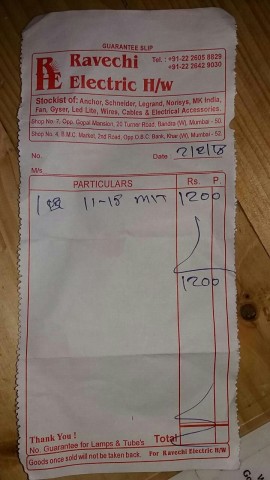 GUARANTEE SLIP
RE Ravechi Electric H/w
Tel. : +91-22 2605 8829
+91-22 2642 9030
Stockist of: Anchor, Schneider, Legrand, Norisys, MK India,
Fan, Gyser, Led Lite, Wires, Cables & Electrical Accessories.
Shop No. 7, Opp. Gopal Mansion, 20 Turner Road, Bandra (W), Mumbai - 50.
Shop No. 4, B.M.C. Market, 2nd Road, Opp O.B.C. Bank, Khar (W), Mumbai - 52.
No. Date
M/s
PARTICULARS Rs. P.
1 11-15 1200
1200
Thank You !
No. Guarantee for Lamps & Tube's Total
Goods once sold will not be taken back. For Ravechi Electric H/W